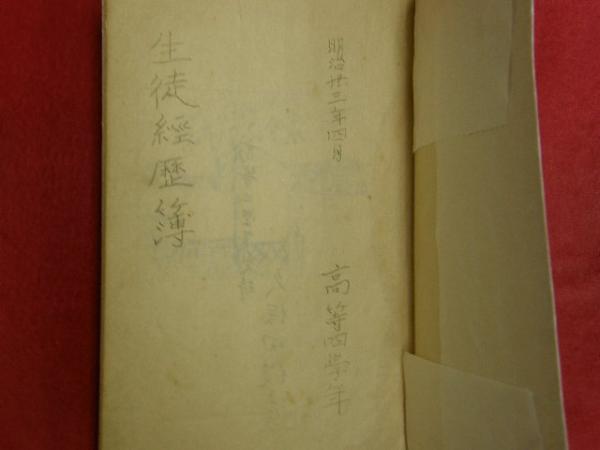 明治廿三年四月
高等四學年
生徒經歴簿